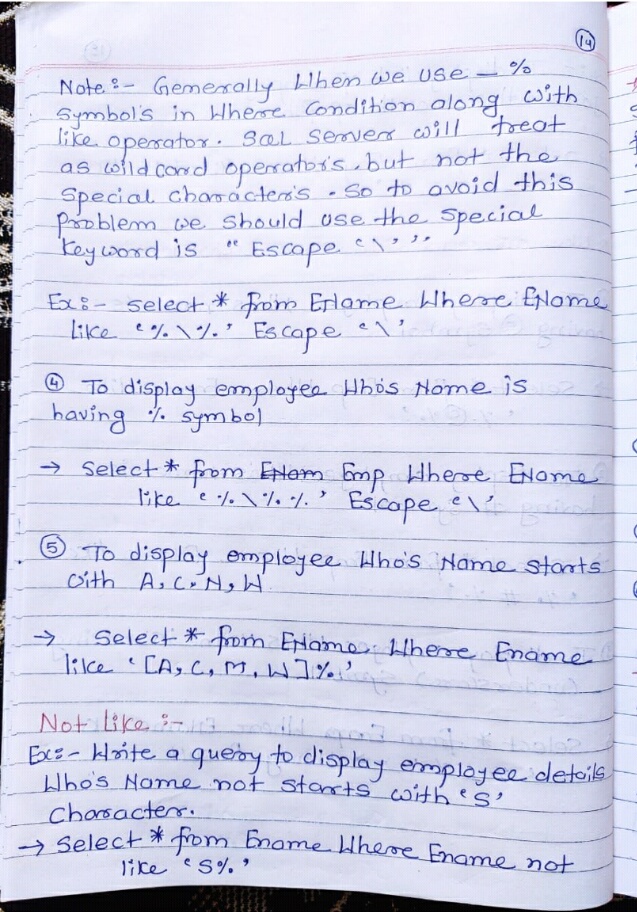 14
Note :- Generally When we use _ %
symbol's in Where Condition along with
like operator. SQL Server will treat
as wild card operator's. but not the
special character's. so to avoid this
problem we should use the special
keyword is " Escape '\' "
Ex:- select * from EName Where EName
like '%\%.' Escape '\'
④ To display employee Who's Name is
having % symbol
→ Select * from ENam Emp Where EName
like '%\%%' Escape '\'
⑤ To display employee Who's Name starts
with A, C, N, W
→ Select * from EName Where Ename
like '[A, C, M, W]%'
Not Like :-
Ex:- Write a query to display employee details
Who's Name not starts with 'S'
Character.
→ Select * from Ename Where Ename not
like 'S%'